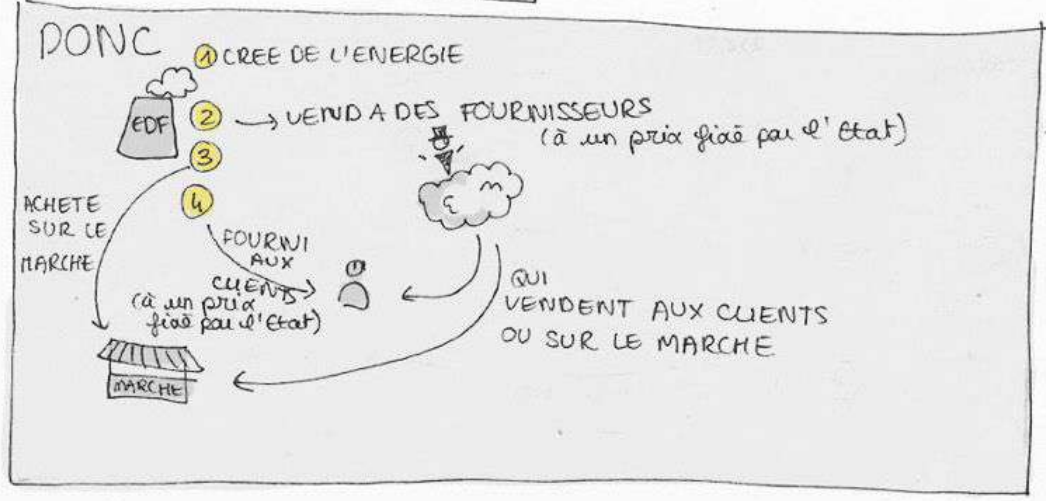 DONC
1 CREE DE L'ENERGIE
EDF
2 → VEND A DES FOURNISSEURS
(à un prix fixé par l'Etat)
3
4
ACHETE
SUR LE
MARCHE
FOURNI
AUX
CLIENTS
(à un prix
fixé par l'Etat)
QUI
VENDENT AUX CLIENTS
OU SUR LE MARCHE
MARCHE